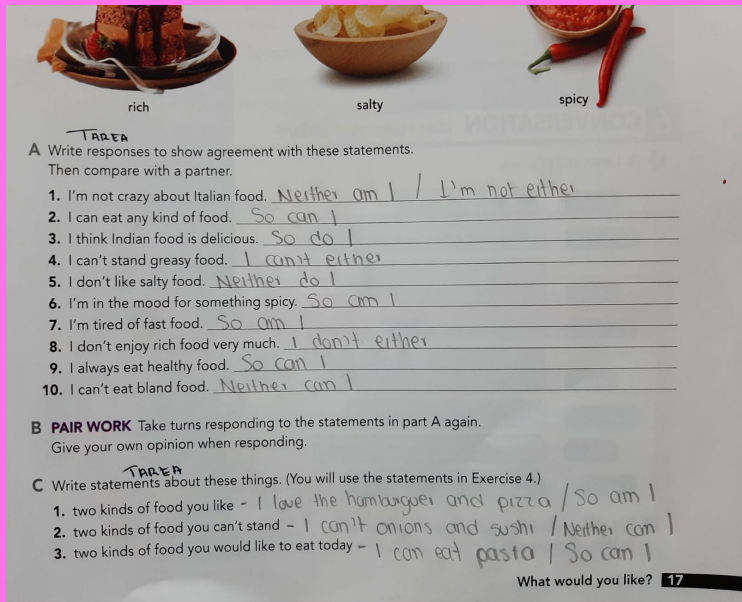 rich
salty
spicy
TAREA
A Write responses to show agreement with these statements.
Then compare with a partner.
1. I'm not crazy about Italian food. Neither am I / I'm not either
2. I can eat any kind of food. So can I
3. I think Indian food is delicious. So do I
4. I can't stand greasy food. I can't either
5. I don't like salty food. Neither do I
6. I'm in the mood for something spicy. So am I
7. I'm tired of fast food. So am I
8. I don't enjoy rich food very much. I don't either
9. I always eat healthy food. So can I
10. I can't eat bland food. Neither can I
B PAIR WORK Take turns responding to the statements in part A again.
Give your own opinion when responding.
TAREA
C Write statements about these things. (You will use the statements in Exercise 4.)
1. two kinds of food you like - I love the hamburguer and pizza / So am I
2. two kinds of food you can't stand - I can't onions and sushi / Neither can I
3. two kinds of food you would like to eat today - I can eat pasta / So can I
What would you like? 17